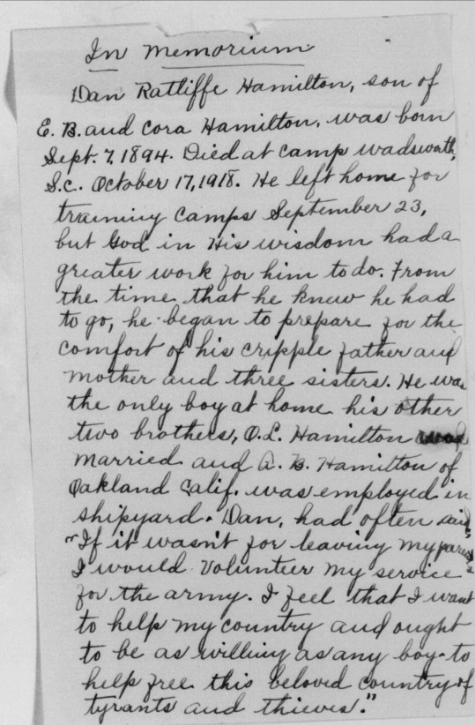 In Memorium
Dan Ratliffe Hamilton, son of
E. B. and Cora Hamilton, was born
Sept. 7, 1894. Died at Camp Wadsworth,
S.C. October 17, 1918. He left home for
training camps September 23,
but God in His wisdom had a
greater work for him to do. From
the time that he knew he had
to go, he began to prepare for the
comfort of his cripple father and
mother and three sisters. He was
the only boy at home his other
two brothers, O. L. Hamilton was
married and A. B. Hamilton of
Oakland Calif. was employed in
shipyard. Dan, had often said
"If it wasn't for leaving my parents
I would volunteer my service
for the army. I feel that I want
to help my country and ought
to be as willing as any boy to
help free this beloved country of
tyrants and thieves."